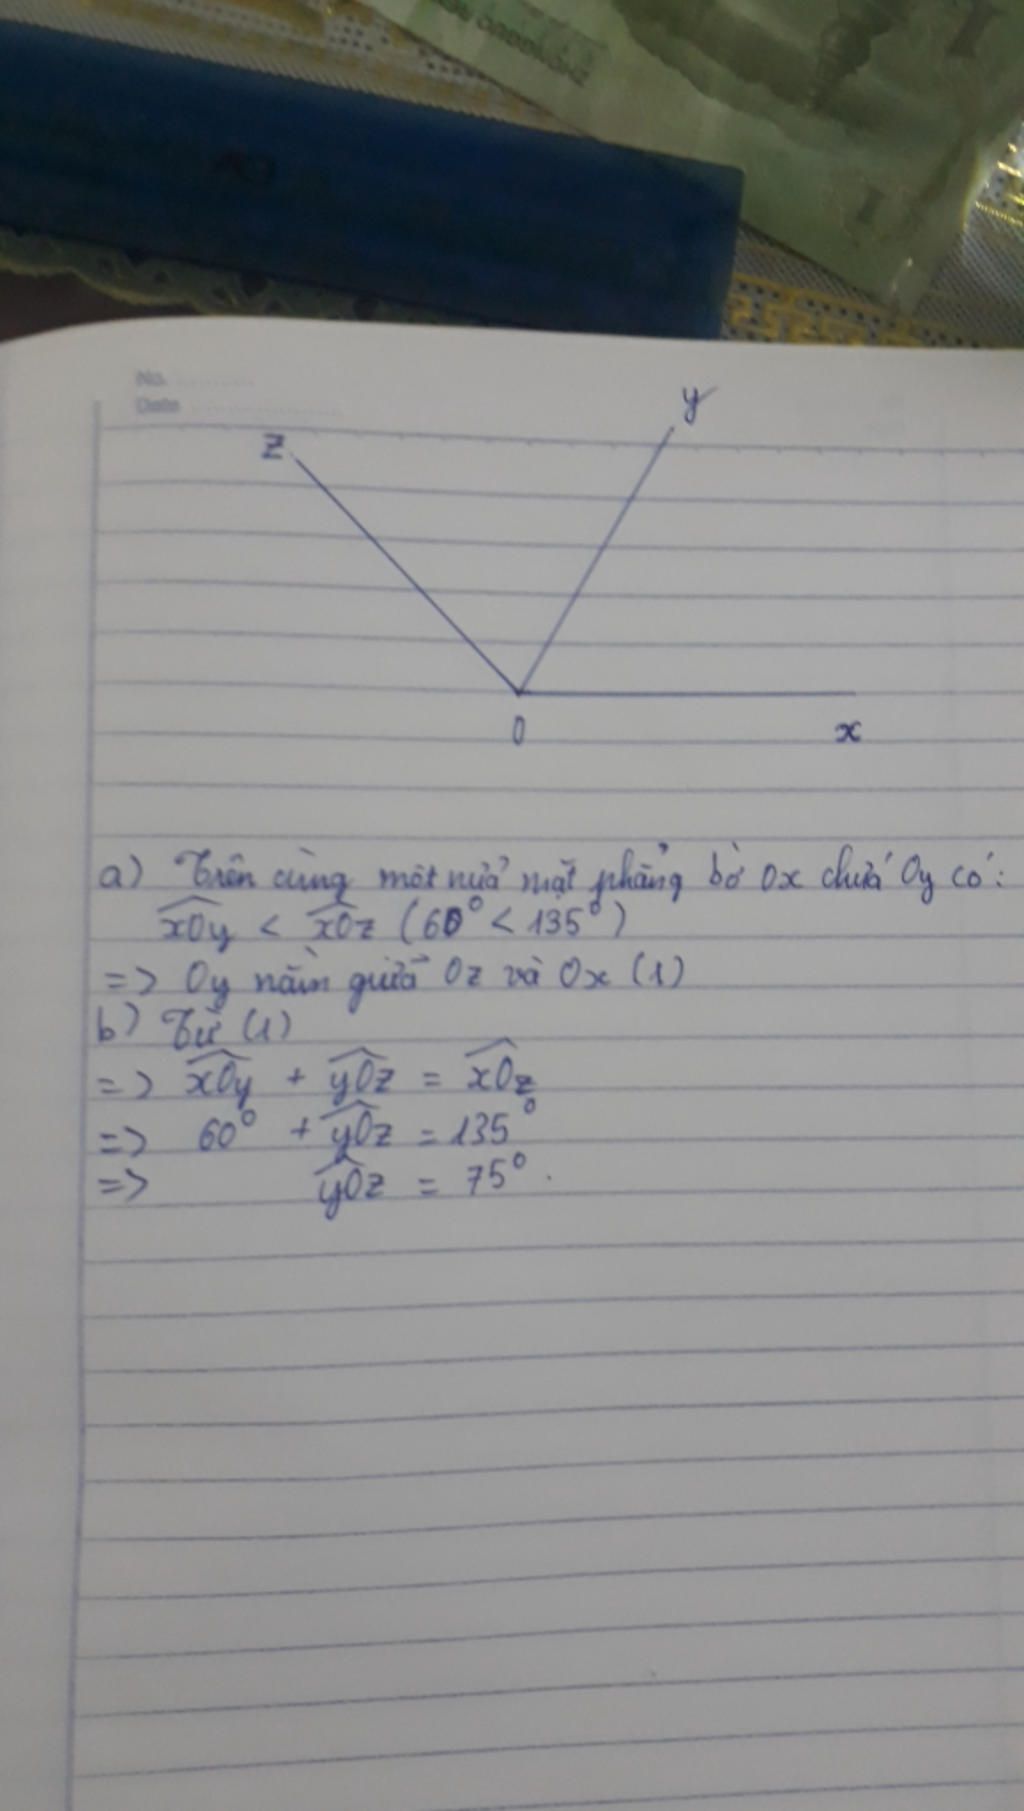 No.
Date
z
y
O
x
a) Trên cùng một nửa mặt phẳng bờ Ox chứa Oy có:
xOy < xOz (60° < 135°)
=> Oy nằm giữa Oz và Ox (1)
b) Từ (1)
=> xOy + yOz = xOz
=> 60° + yOz = 135°
=> yOz = 75°.